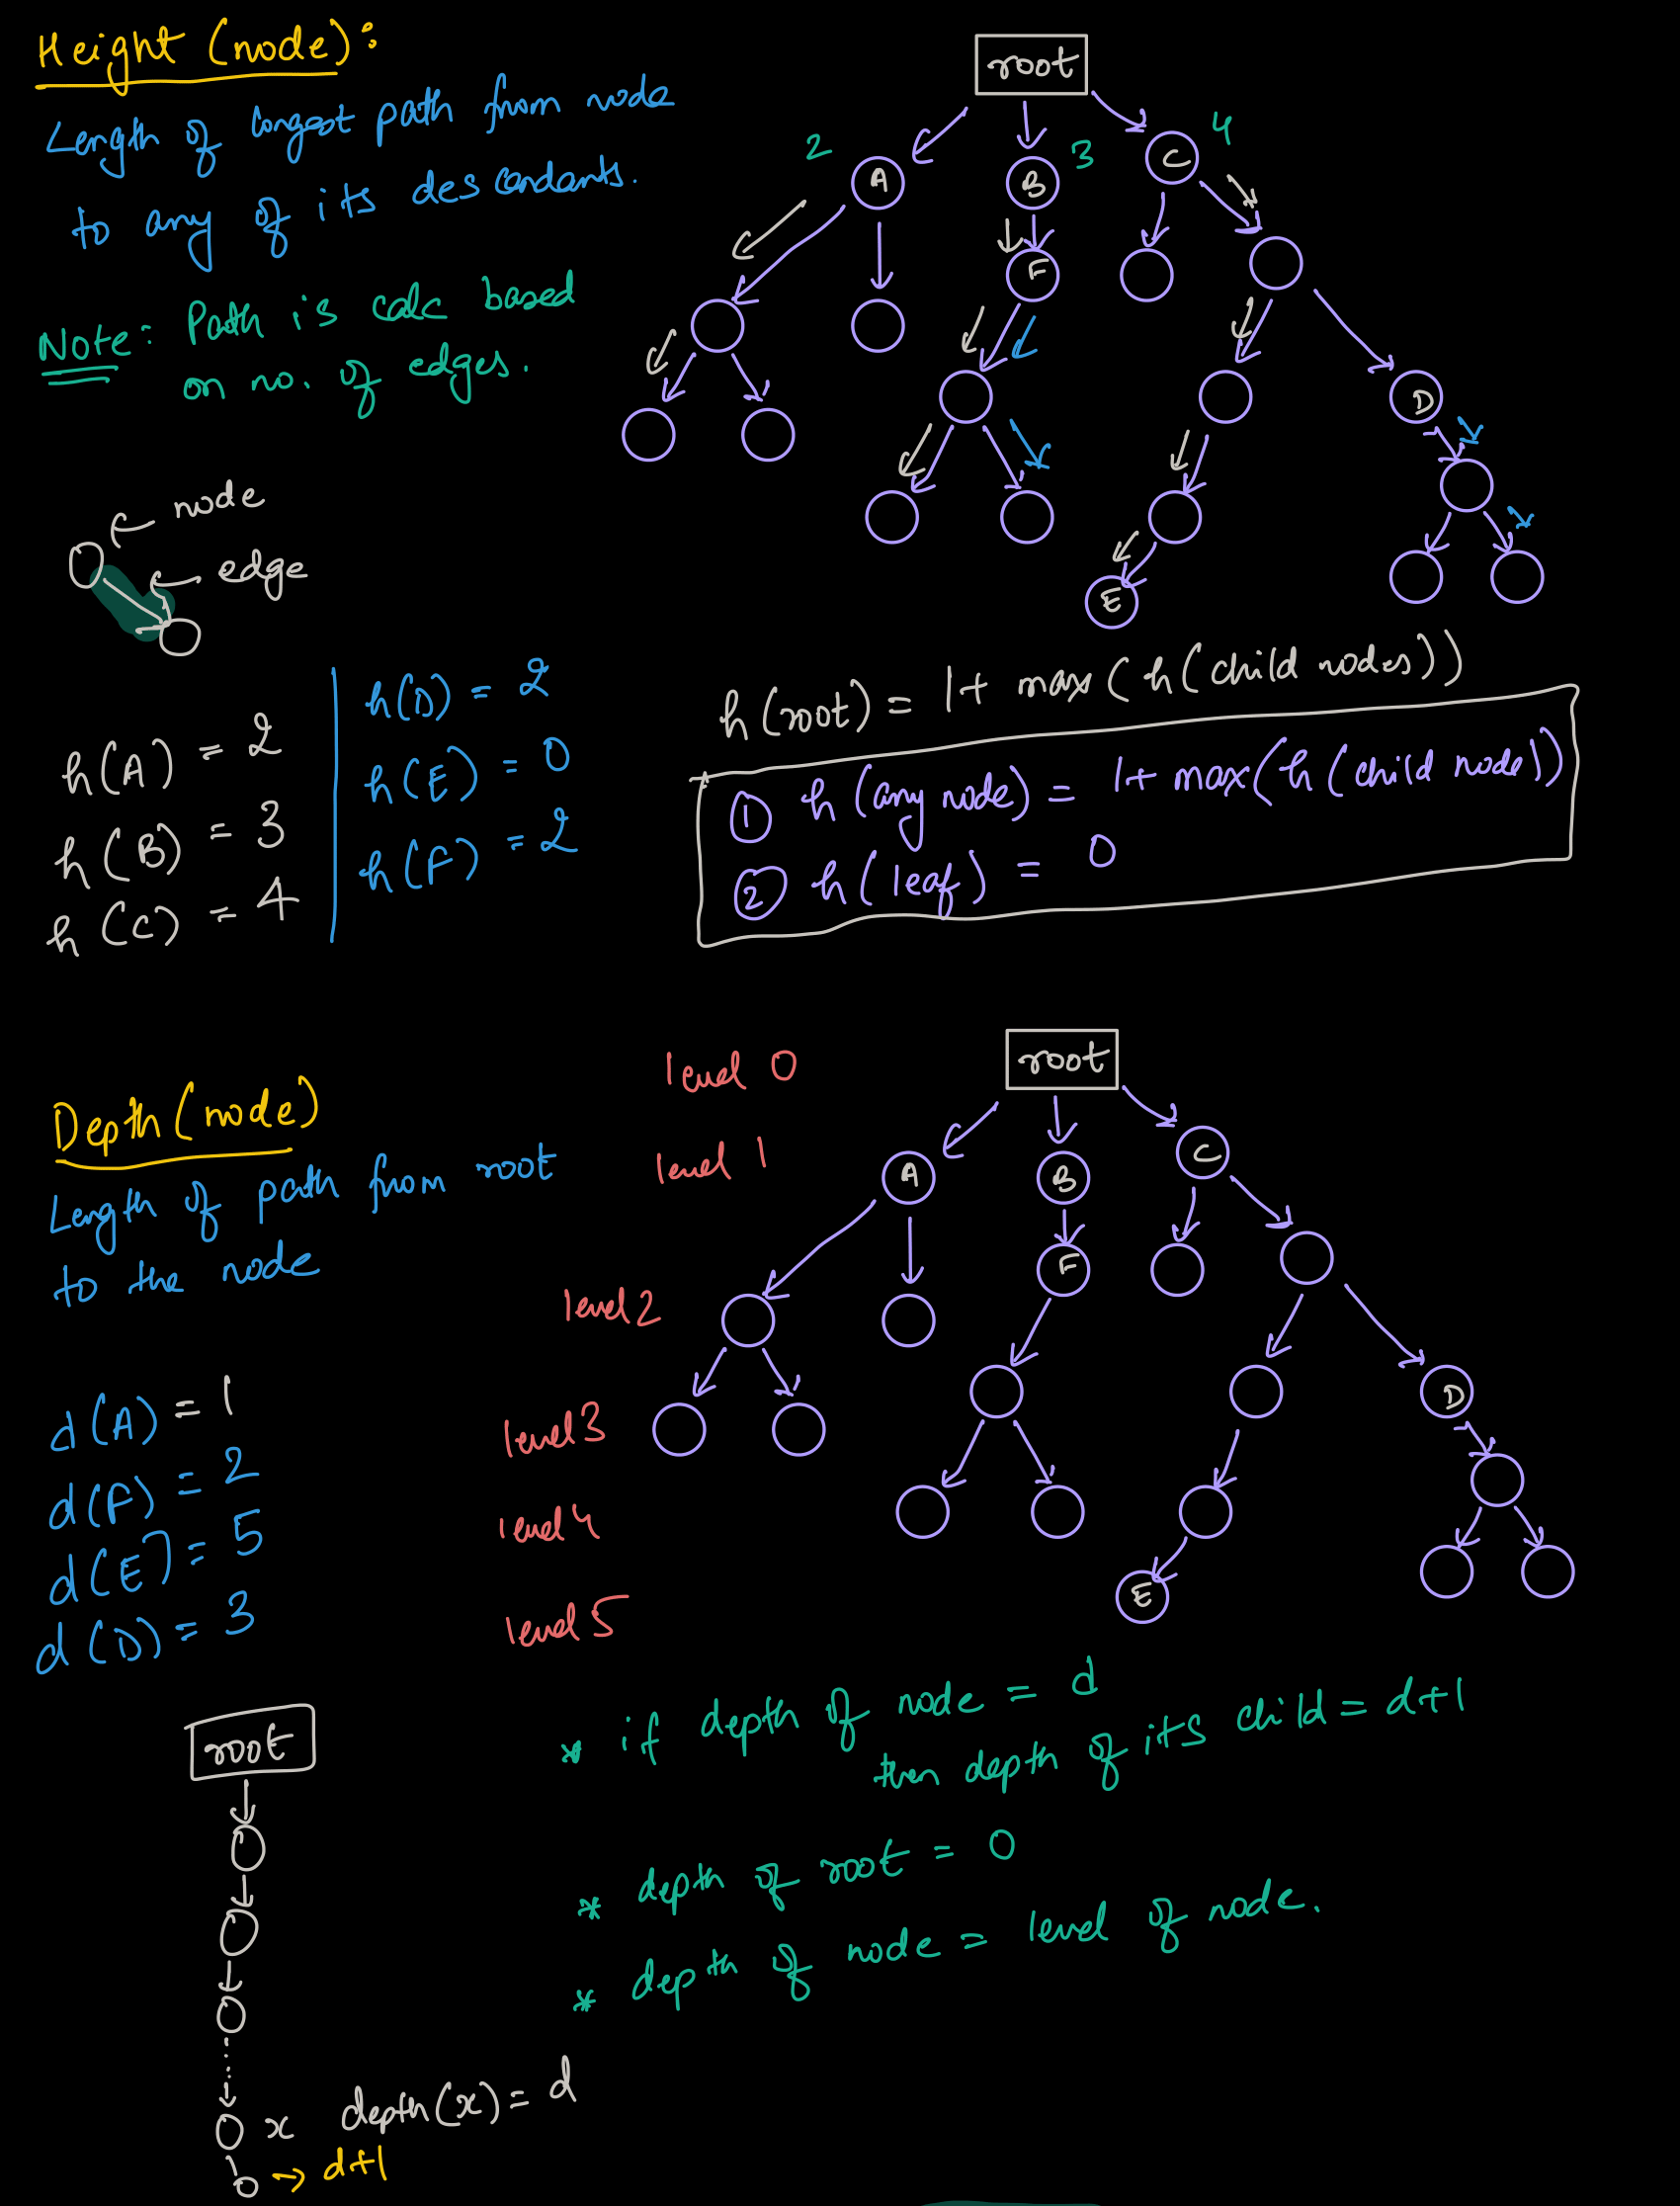 Height (node):
Length of longest path from node
to any of its descendants.
Note: Path is calc based
on no. of edges.
node
edge
root
2
A
B
3
C
4
F
D
E
h(A) = 2
h(B) = 3
h(C) = 4
h(D) = 2
h(E) = 0
h(F) = 2
h(root) = 1+ max(h(child nodes))
① h(any node) = 1+ max(h(child node))
② h(leaf) = 0
Depth(node)
Length of path from root
to the node
d(A) = 1
d(F) = 2
d(E) = 5
d(D) = 3
level 0
level 1
level 2
level 3
level 4
level 5
root
A
B
C
F
D
E
root
x depth(x) = d
→ d+1
* if depth of node = d
then depth of its child = d+1
* depth of root = 0
* depth of node = level of node.